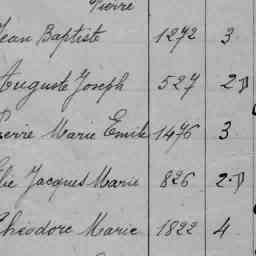 Pierre
Jean Baptiste 1272 3
Auguste Joseph 527 2D
Pierre Marie Emile 1476 3
Elie Jacques Marie 826 2D
Théodore Marie 1822 4